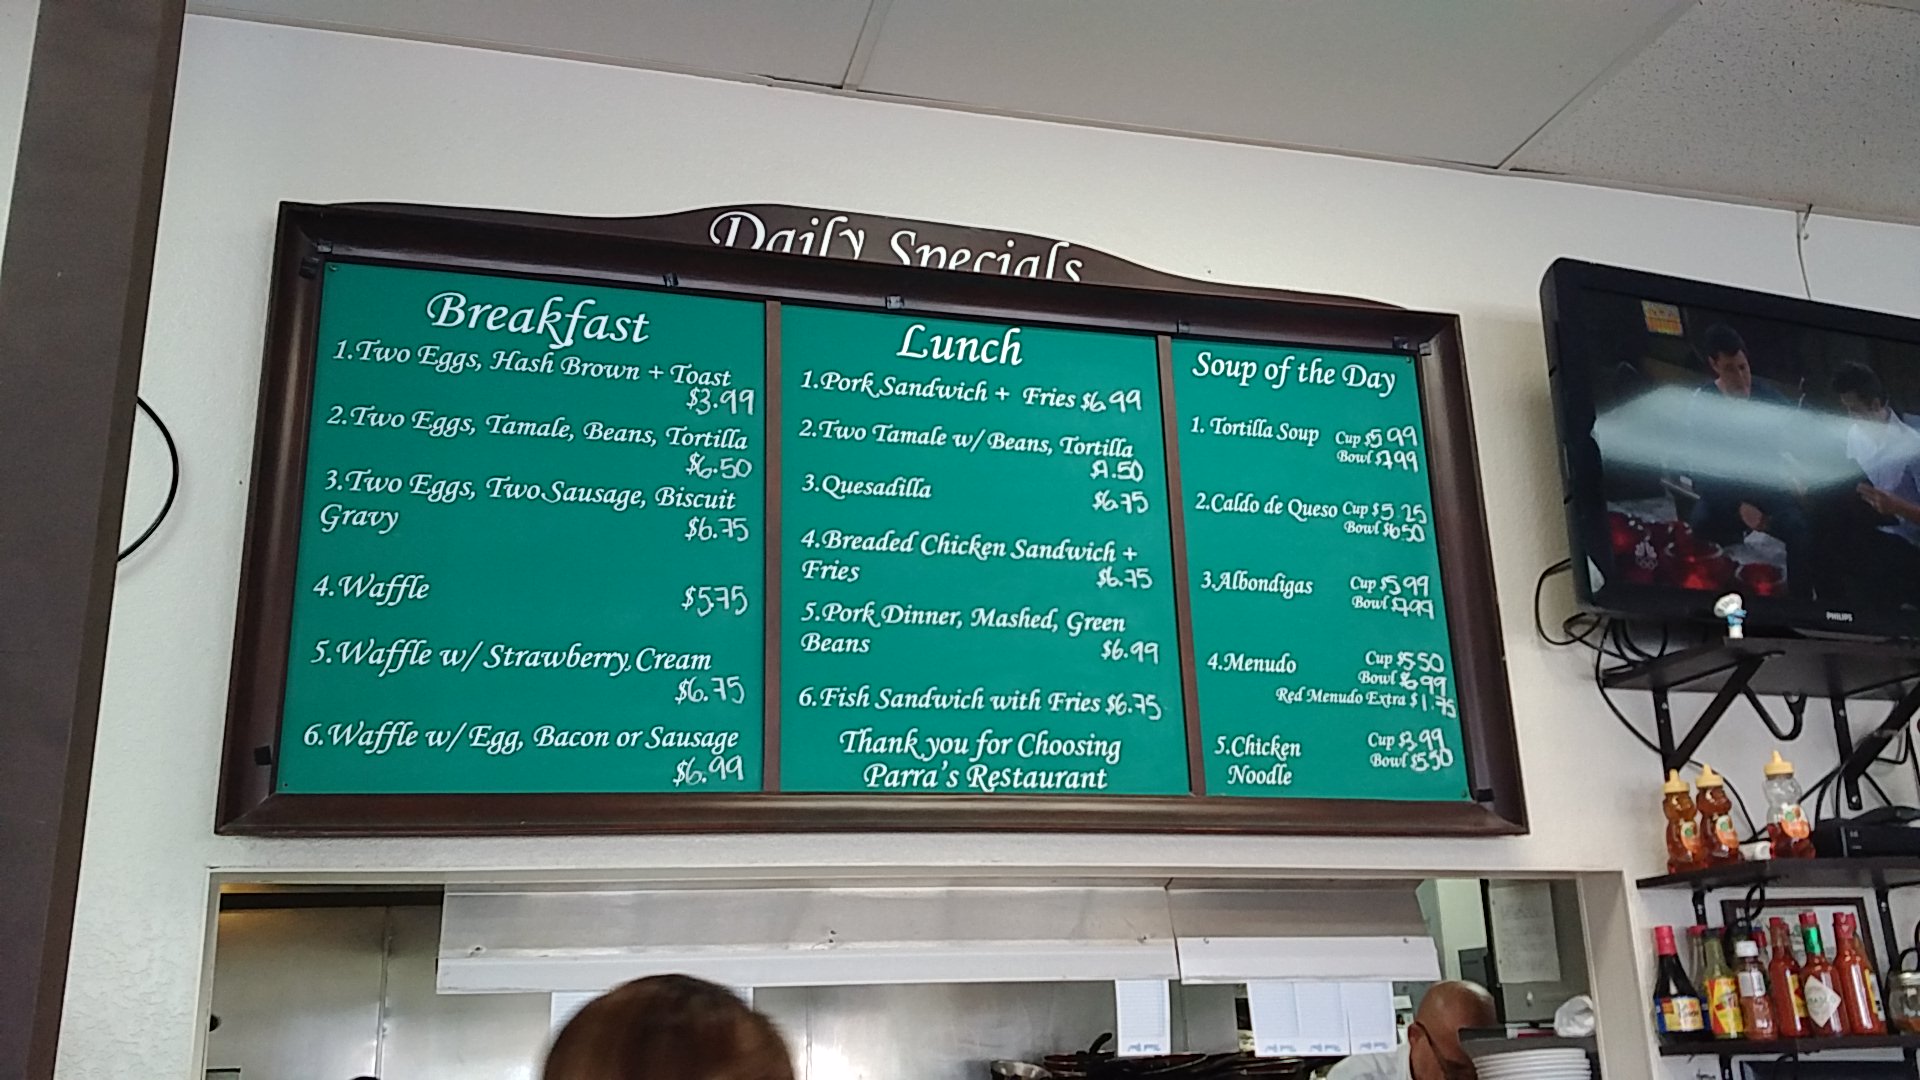 Daily Specials
Breakfast
1.Two Eggs, Hash Brown + Toast
$3.99
2.Two Eggs, Tamale, Beans, Tortilla
$6.50
3.Two Eggs, Two Sausage, Biscuit
Gravy $6.75
4.Waffle $5.75
5.Waffle w/ Strawberry, Cream
$6.75
6.Waffle w/ Egg, Bacon or Sausage
$6.99
Lunch
1.Pork Sandwich + Fries $6.99
2.Two Tamale w/ Beans, Tortilla
$7.50
3.Quesadilla $6.75
4.Breaded Chicken Sandwich +
Fries $6.75
5.Pork Dinner, Mashed, Green
Beans $6.99
6.Fish Sandwich with Fries $6.75
Thank you for Choosing
Parra's Restaurant
Soup of the Day
1. Tortilla Soup Cup $5.99
Bowl $7.99
2.Caldo de Queso Cup $5.25
Bowl $6.50
3.Albondigas Cup $5.99
Bowl $7.99
4.Menudo Cup $5.50
Bowl $6.99
Red Menudo Extra $1.75
5.Chicken Cup $3.99
Noodle Bowl $5.50
PHILIPS